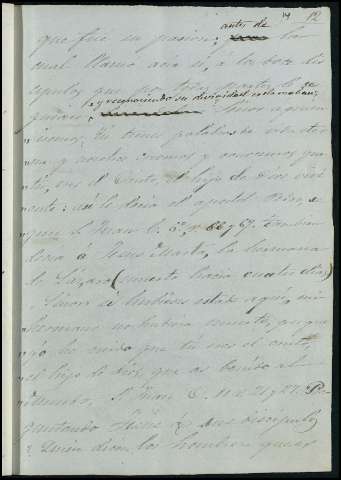 antes de 14 12
que fué su pasion; la
cual llamó acia sí, a los doce dis
cipulos que por todas partes le se
y reconociendo su divinidad esclamaban;
guian Señor á quien
iremos, Tu tienes palabras de vida eter
na y nosotros creemos y conocemos que
tu, eres el Cristo, el hijo de Dios vivi
ente: así le decia el apostol Pedro, se
gun S. Juan C. 6º, v. 68 y 69. tambien
decia á Jesus Marta, la hermana
de Lázaro (muerto hacia cuatro dias)
Señor si hubieras estado aqui, mi
hermano no hubiera muerto, pues
yo he creido que tu eres el cristo,
el hijo de dios, que as benido al
mundo, S. Juan C. 11 v. 21 y 27. Pre
guntando Jesus a sus discipulos
Quien dicen los hombres que es